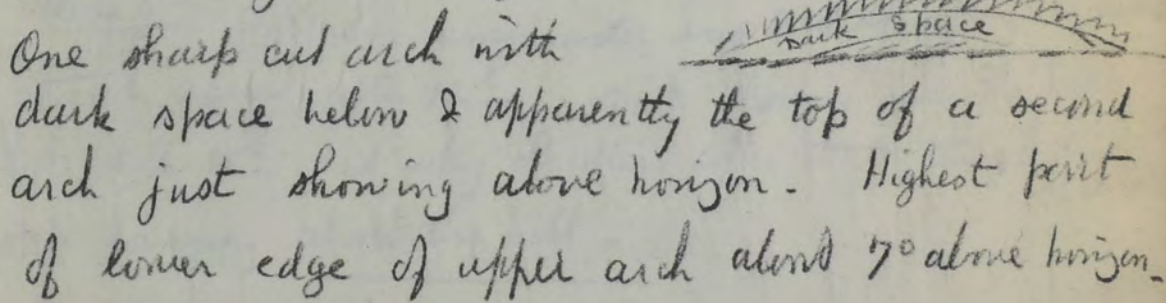 dark space
One sharp cut arch with
dark space below & apparently the top of a second
arch just showing above horizon. Highest point
of lower edge of upper arch about 7° above horizon.